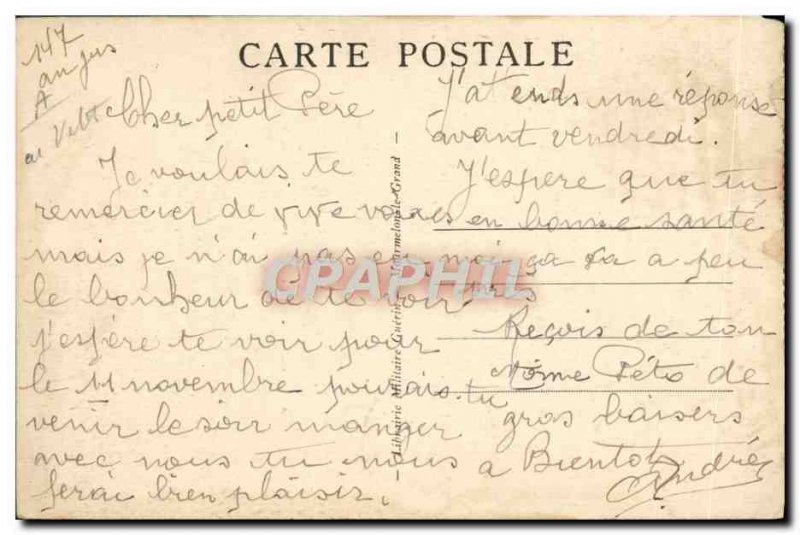 CARTE POSTALE
147
Cher petit Père
Je voulais te
remercier de vive voix
mais je n'ai pas eu
le bonheur de te voir
j'espère te voir pour
le 11 novembre pourais-tu
venir le soir manger
avec nous tu nous
ferai bien plaisir.
J'attends une réponse
avant vendredi.
J'espere que tu
es en bonne santé
moi ça va a peu
près
Reçois de ton
Môme Péto de
gros baisers
a Bientot
André
Librairie Militaire Guérin - Mourmelon-le-Grand
CPAPHIL